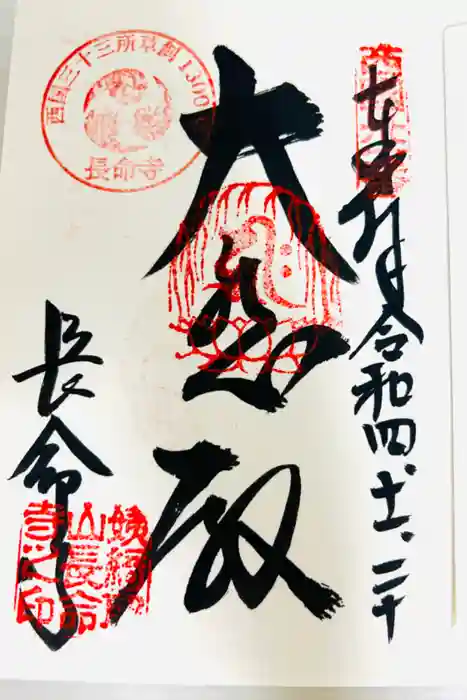 奉拝 令和四、十一、二十
大悲殿
長命寺
西国三十三所草創1300
長命寺
姨綺耶
山長命
寺之印